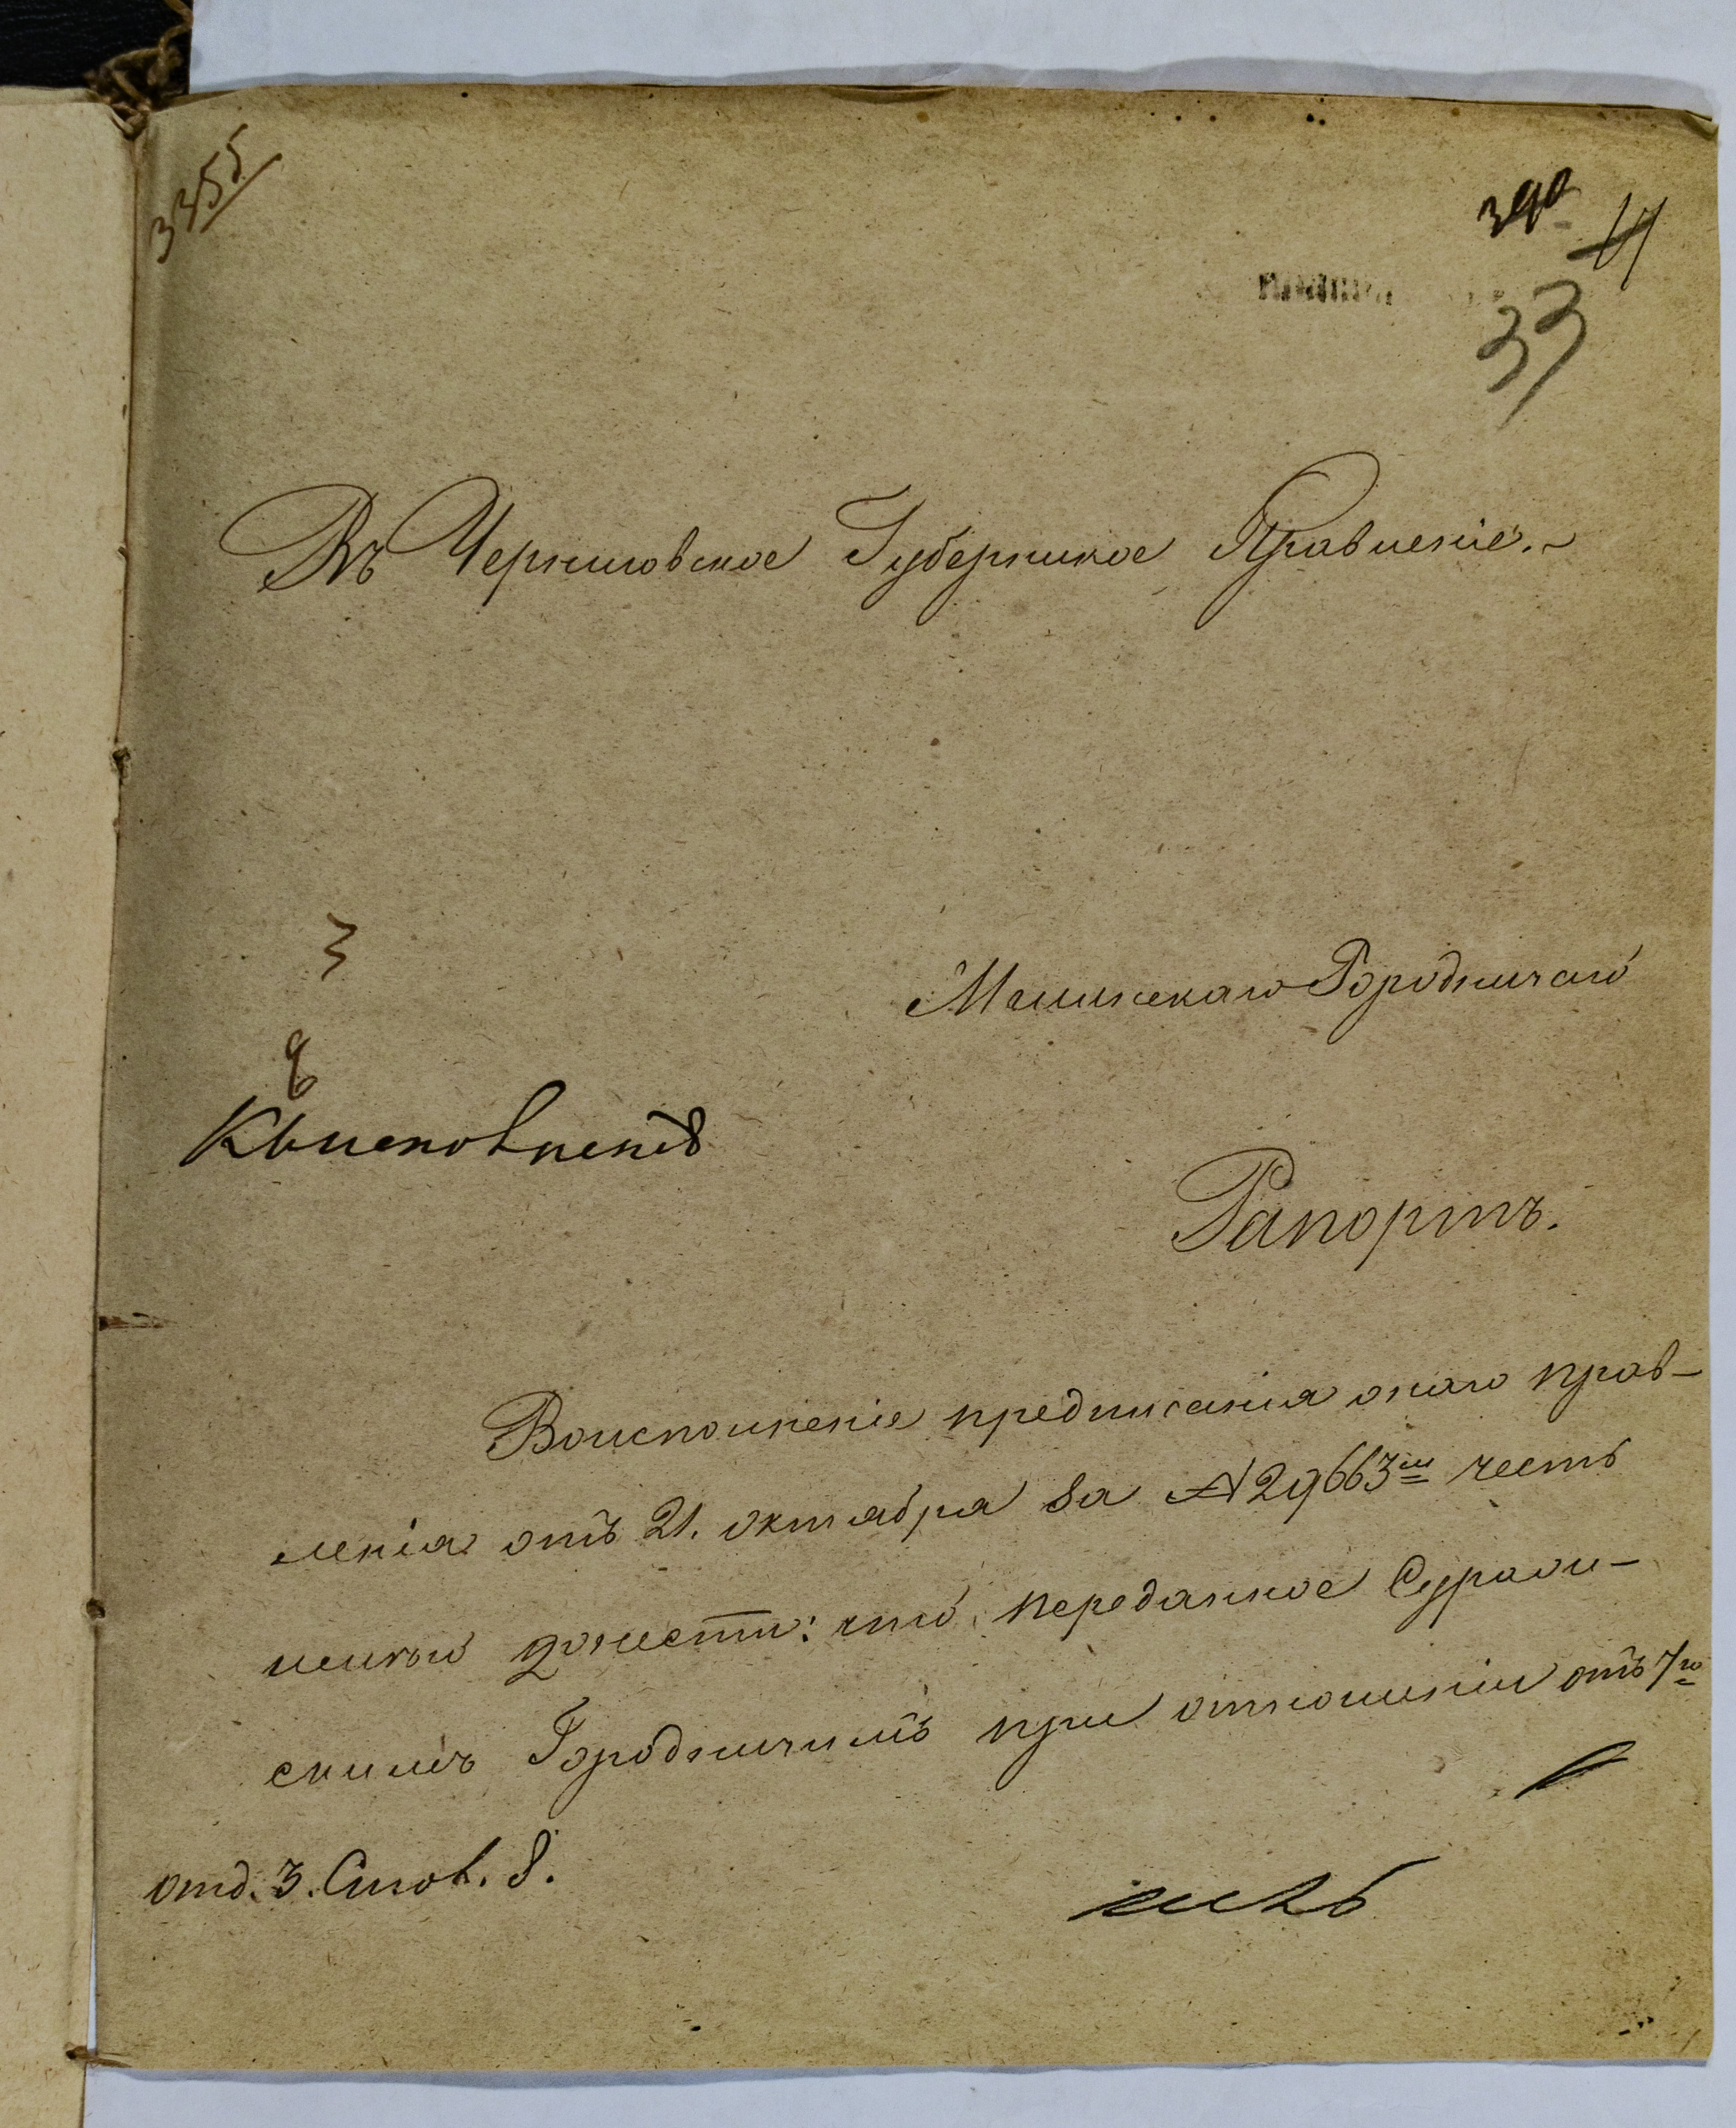 3355
390
33
Въ Черниговское Губернское Правленіе.
Мглинскаго Городничаго
3
8
Къ исполненію
Рапортъ.
Воисполненіе предписанія онаго прав-
ленія отъ 21. октября за № 29663м честь
имѣю донести: что переданное Суражи-
скимъ Городничимъ при отношеніи отъ 7го
отд. 3. Стол. 8.